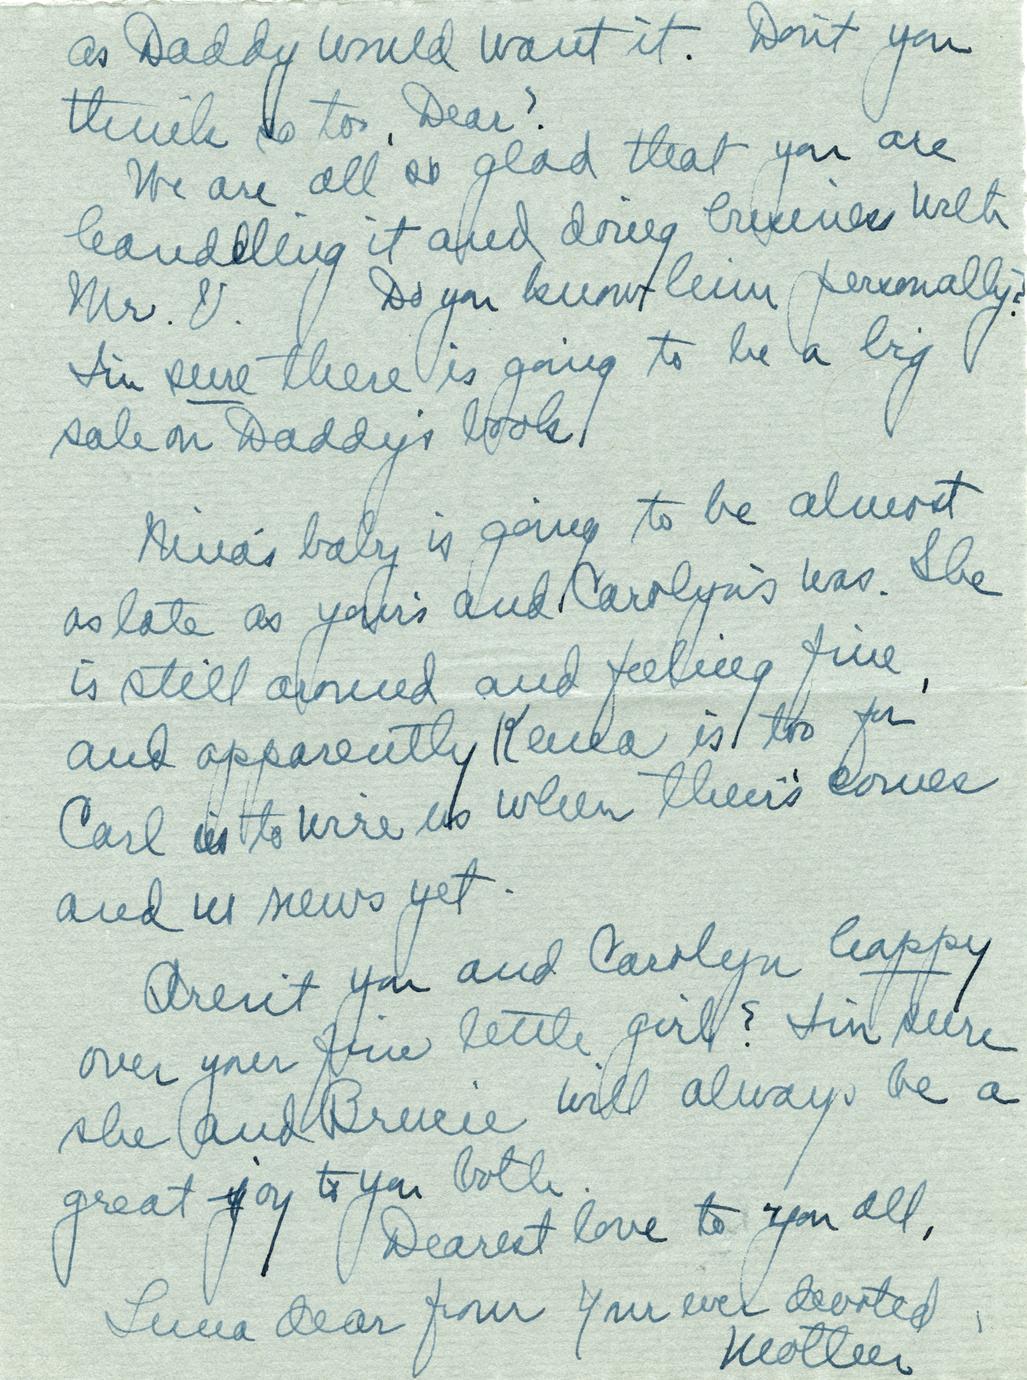 as Daddy would want it. Don't you
think so too, Dear?
We are all so glad that you are
handdling it and doing business with
Mr. V. Do you know him personally?
I'm sure there is going to be a big
sale on Daddy's book.
Nina's baby is going to be almost
as late as your's and Carolyn's was. She
is still around and feeling fine,
and apparently Kenea is too for
Carl is to wire us when their's comes
and no news yet.
Aren't you and Carolyn happy
over your fine little girl? I'm sure
she and Brucie will always be a
great joy to you both.
Dearest love to you all,
dear from Your ever devoted
Mother